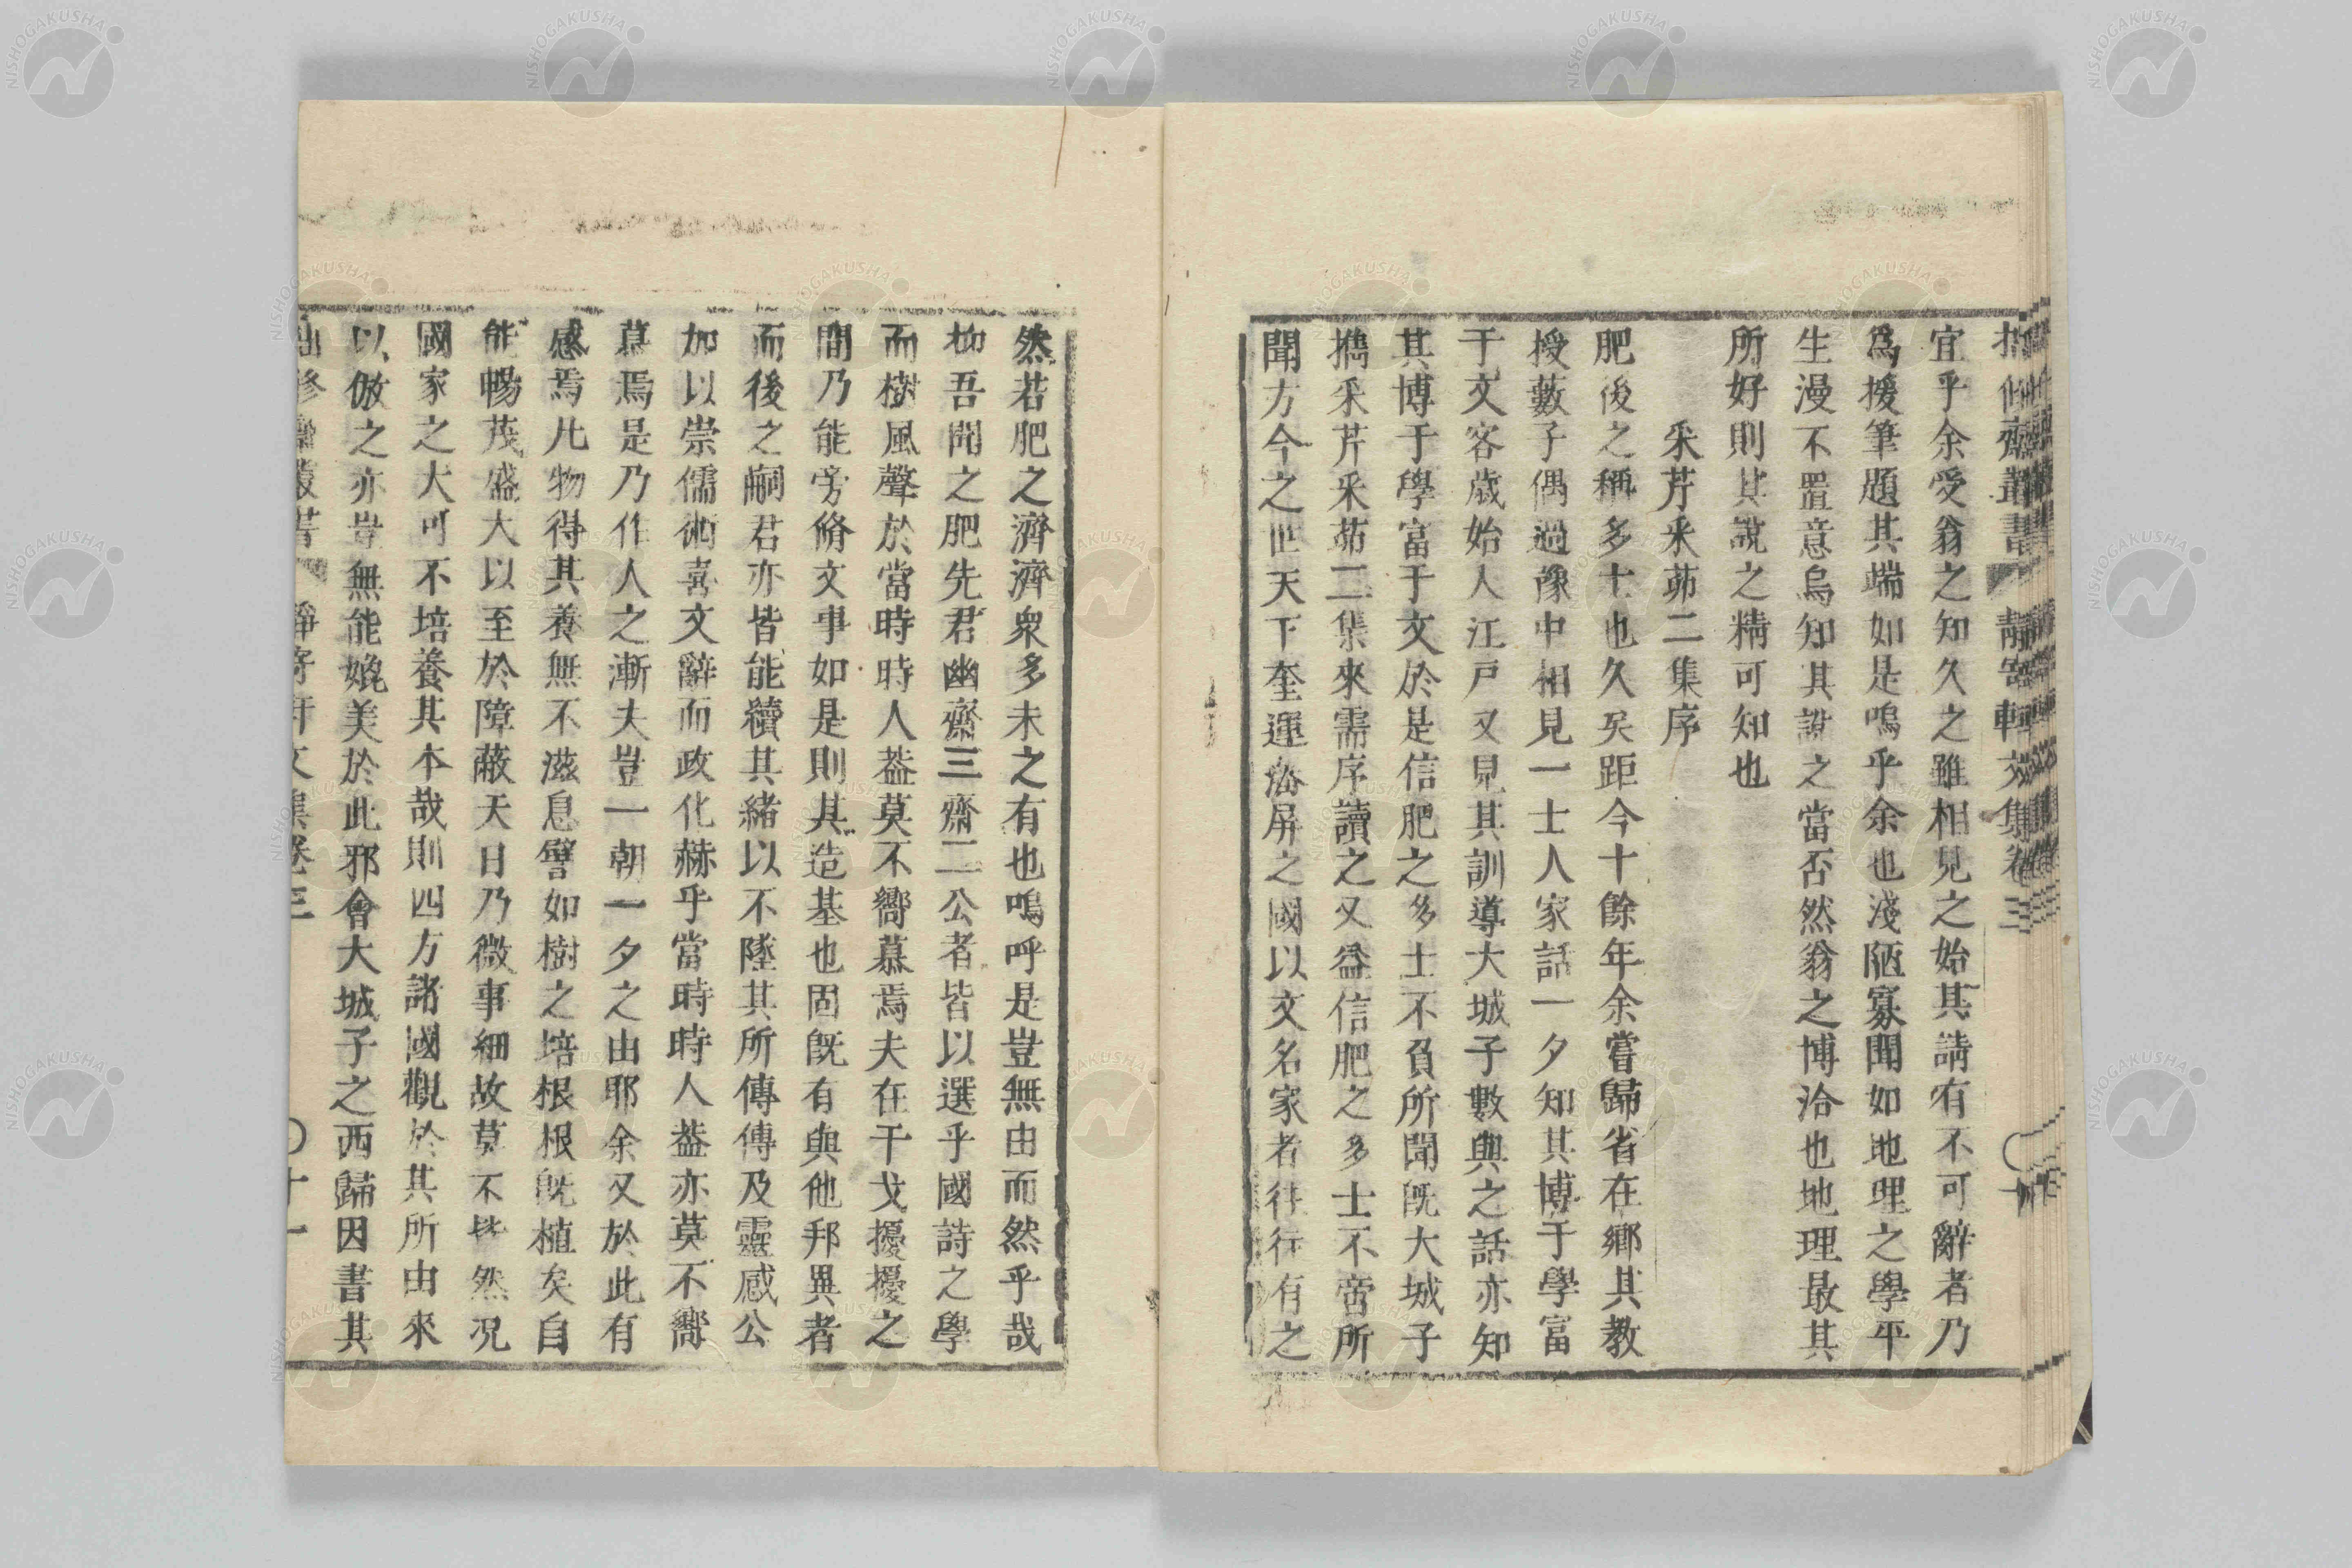 拙修齋叢書 靜寄軒文集卷三
宜乎余受翁之知久之雖相見之始其請有不可辭者乃
爲援筆題其端如是嗚乎余也淺陋寡聞如地理之學平
生漫不置意烏知其說之當否然翁之博洽也地理最其
所好則其說之精可知也
采芹采茆二集序
肥後之稱多士也久矣距今十餘年余嘗歸省在鄉其教
授藪子偶過豫中相見一士人家話一夕知其博于學富
于文客歲始人江戸又見其訓導大城子數與之話亦知
其博于學富于文於是信肥之多士不負所聞旣大城子
携采芹采茆二集來需序讀之又益信肥之多士不啻所
聞方今之世天下奎運藩屏之國以文名家者往往有之
然若肥之濟濟衆多未之有也嗚呼是豈無由而然乎哉
抑吾聞之肥先君幽齋三齋二公者皆以選乎國詩之學
而樹風聲於當時時人葢莫不嚮慕焉夫在干戈擾擾之
間乃能旁脩文事如是則其造基也固旣有與他邦異者
而後之嗣君亦皆能纘其緒以不墜其所傳傳及靈感公
加以崇儒術喜文辭而政化赫乎當時時人葢亦莫不嚮
慕焉是乃作人之漸夫豈一朝一夕之由耶余又於此有
感焉凡物得其養無不滋息譬如樹之培根根旣植矣自
能暢茂盛大以至於障蔽天日乃微事細故莫不皆然况
國家之大可不培養其本哉則四方諸國觀於其所由來
以倣之亦豈無能媲美於此邪會大城子之西歸因書其
拙修齋叢書 靜寄軒文集卷三 〇十一